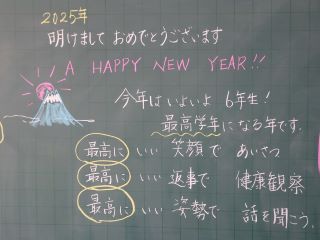 2025年
明けまして おめでとうございます
A HAPPY NEW YEAR!!
今年はいよいよ 6年生!
最高学年になる年です。
最高に いい 笑顔で あいさつ
最高に いい 返事で 健康観察
最高に いい 姿勢で 話を聞こう。